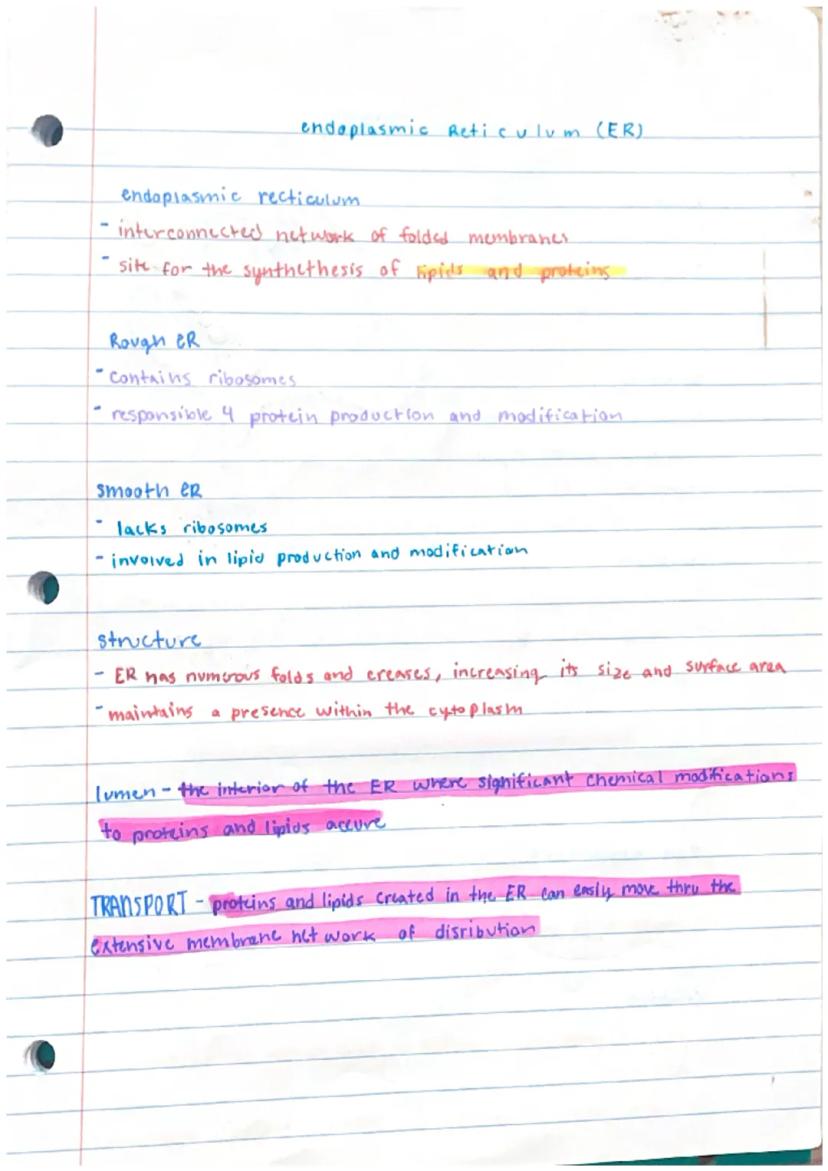 endoplasmic Reticulum (ER)
endoplasmic recticulum
- interconnected network of folded membranes
- site for the synthethesis of lipids and proteins
Rough ER
- contains ribosomes
- responsible 4 protein production and modification
smooth ER
- lacks ribosomes
- involved in lipid production and modification
structure
- ER has numerous folds and creases, increasing its size and surface area
- maintains a presence within the cytoplasm
lumen - the interior of the ER where significant chemical modifications
to proteins and lipids accure
TRANSPORT - proteins and lipids created in the ER can easly move thru the
extensive membrane network of disribution